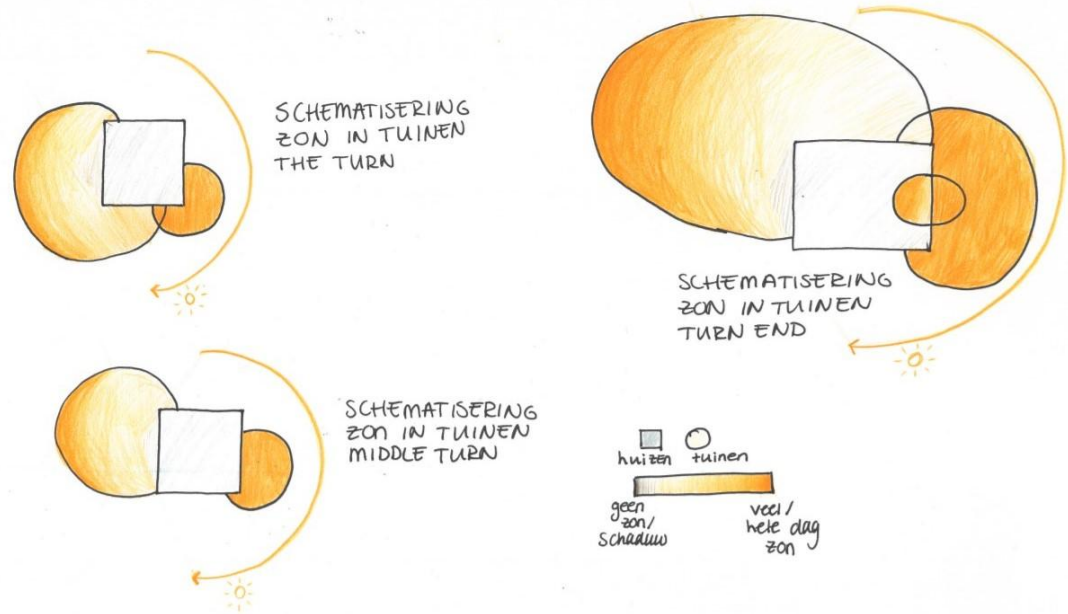 SCHEMATISERING
ZON IN TUINEN
THE TURN
SCHEMATISERING
ZON IN TUINEN
TURN END
SCHEMATISERING
ZON IN TUINEN
MIDDLE TURN
huizen tuinen
geen
zon/
schaduw
veel/
hele dag
zon